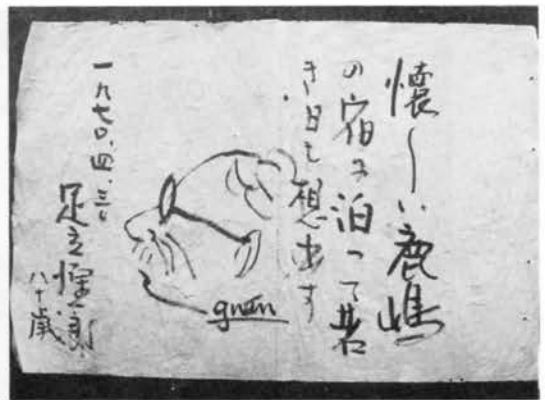 懐しい鹿嶋
の宿に泊って若
き日を想出す
一九七〇.四.三〇
足立源一郎
八十歳